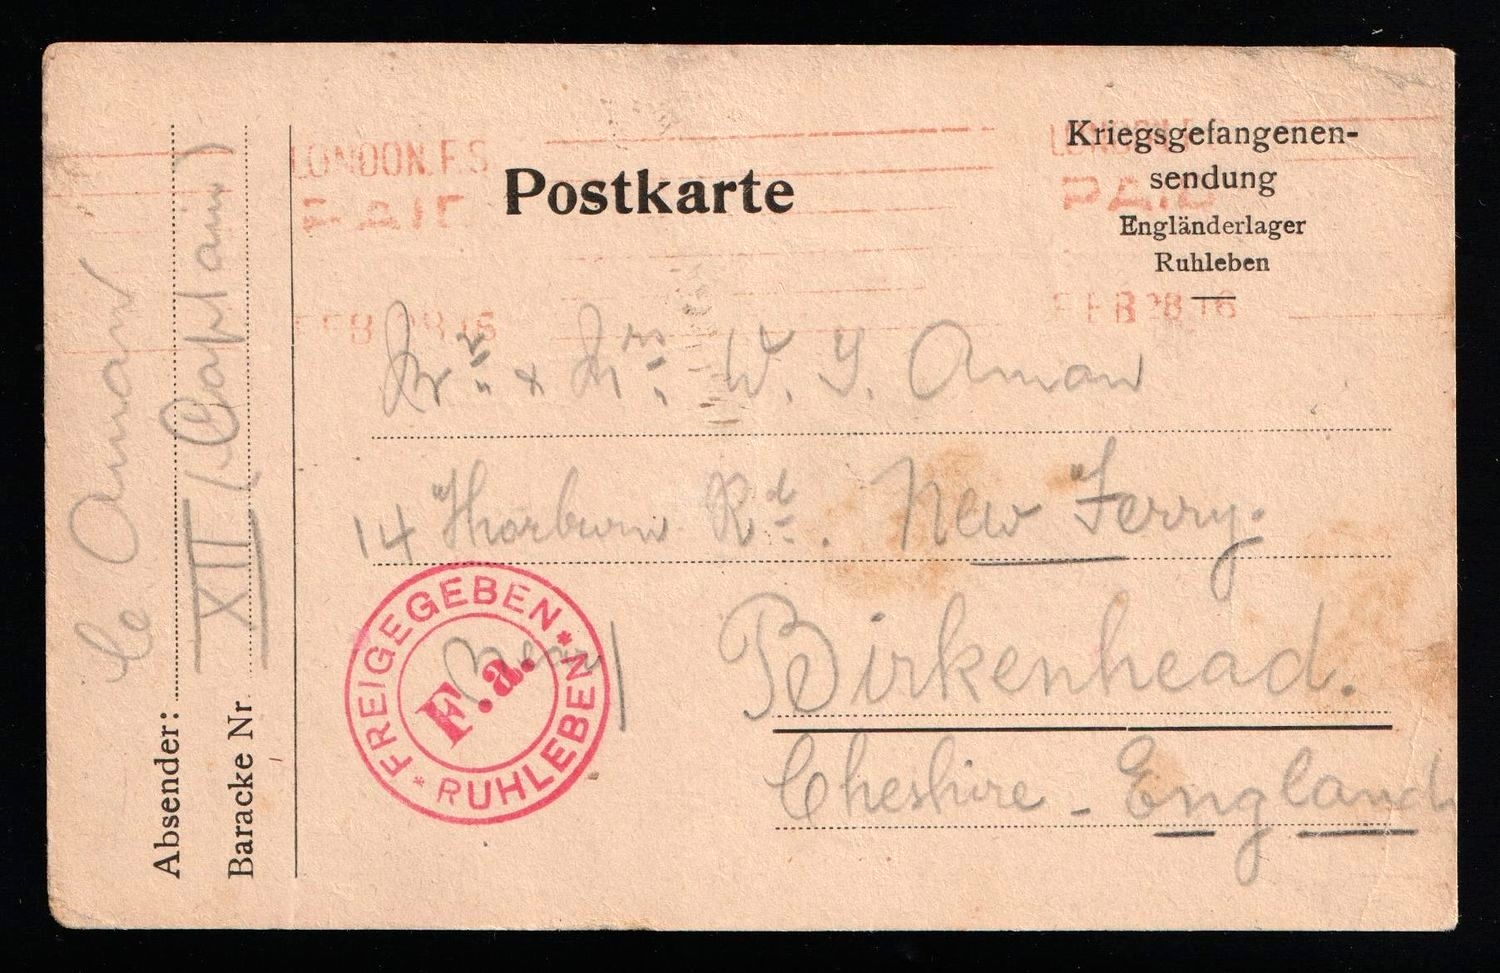 Postkarte
Kriegsgefangenen-
sendung
Engländerlager
Ruhleben
LONDON. F.S.
PAID
FEB 28 16
LONDON. F.S.
PAID
FEB 28 16
Mr. & Mrs. W. Y. Aman
14 Thorburn Rd. New Ferry.
Birkenhead.
Cheshire - England
FREIGEGEBEN * RUHLEBEN *
F. a.
Absender: Aman
Baracke Nr. XII (Captain)